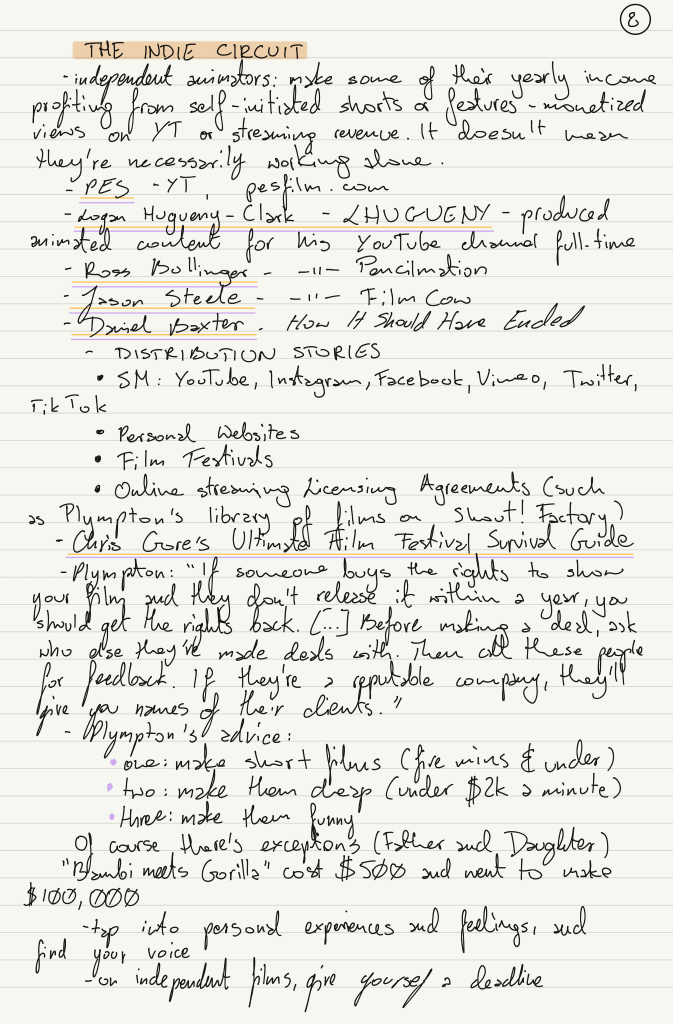 8
THE INDIE CIRCUIT
- independent animators: make some of their yearly income
profiting from self-initiated shorts or features - monetized
views on YT or streaming revenue. It doesn't mean
they're necessarily working alone.
- PES - YT, pesfilm.com
- Logan Hugueny-Clark - LHUGUENY - produced
animated content for his YouTube channel full-time
- Ross Bollinger - -11- Pencilmation
- Jason Steele - -11- Film Cow
- Daniel Baxter. How It Should Have Ended
- DISTRIBUTION STORIES
• SM: YouTube, Instagram, Facebook, Vimeo, Twitter,
TikTok
• Personal Websites
• Film Festivals
• Online streaming Licensing Agreements (such
as Plympton's library of films on Shout! Factory)
- Chris Gore's Ultimate Film Festival Survival Guide
- Plympton: "If someone buys the rights to show
your film and they don't release it within a year, you
should get the rights back. [...] Before making a deal, ask
who else they've made deals with. Then call these people
for feedback. If they're a reputable company, they'll
give you names of their clients."
- Plympton's advice:
• one: make short films (five mins & under)
• two: make them cheap (under $2k a minute)
• three: make them funny
Of course there's exceptions (Father and Daughter)
"Bambi meets Gorilla" cost $500 and went to make
$100,000
- tap into personal experiences and feelings, and
find your voice
- on independent films, give yourself a deadline